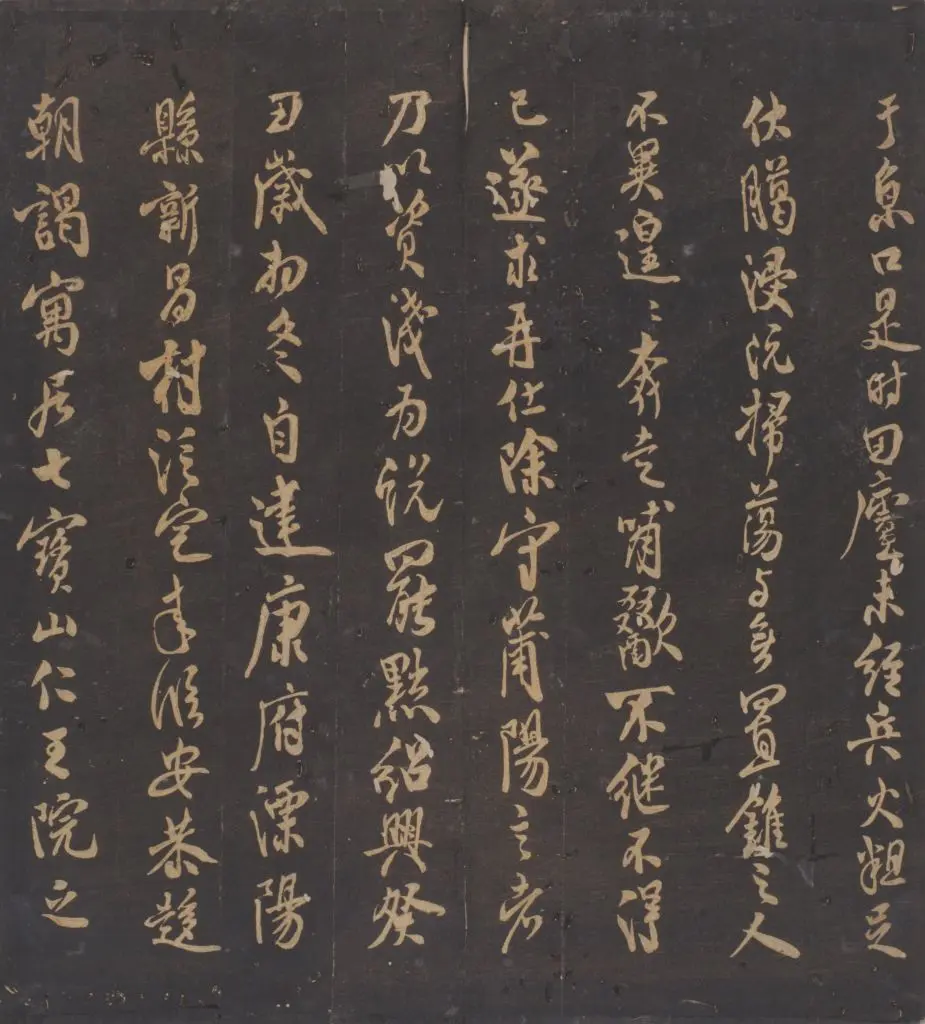 于口是时田廬未經兵火粗足
伏臈浸沉掃蕩与無置錐之人
不異遑〻奔走哺歠不繼不得
已遂求再仕除守莆陽言者
乃以資淺为說罷點紹興癸
丑歲初冬自建康府溧陽
縣新昌村泛宅来臨安恭趍
朝謁寓居七寶山仁王院之